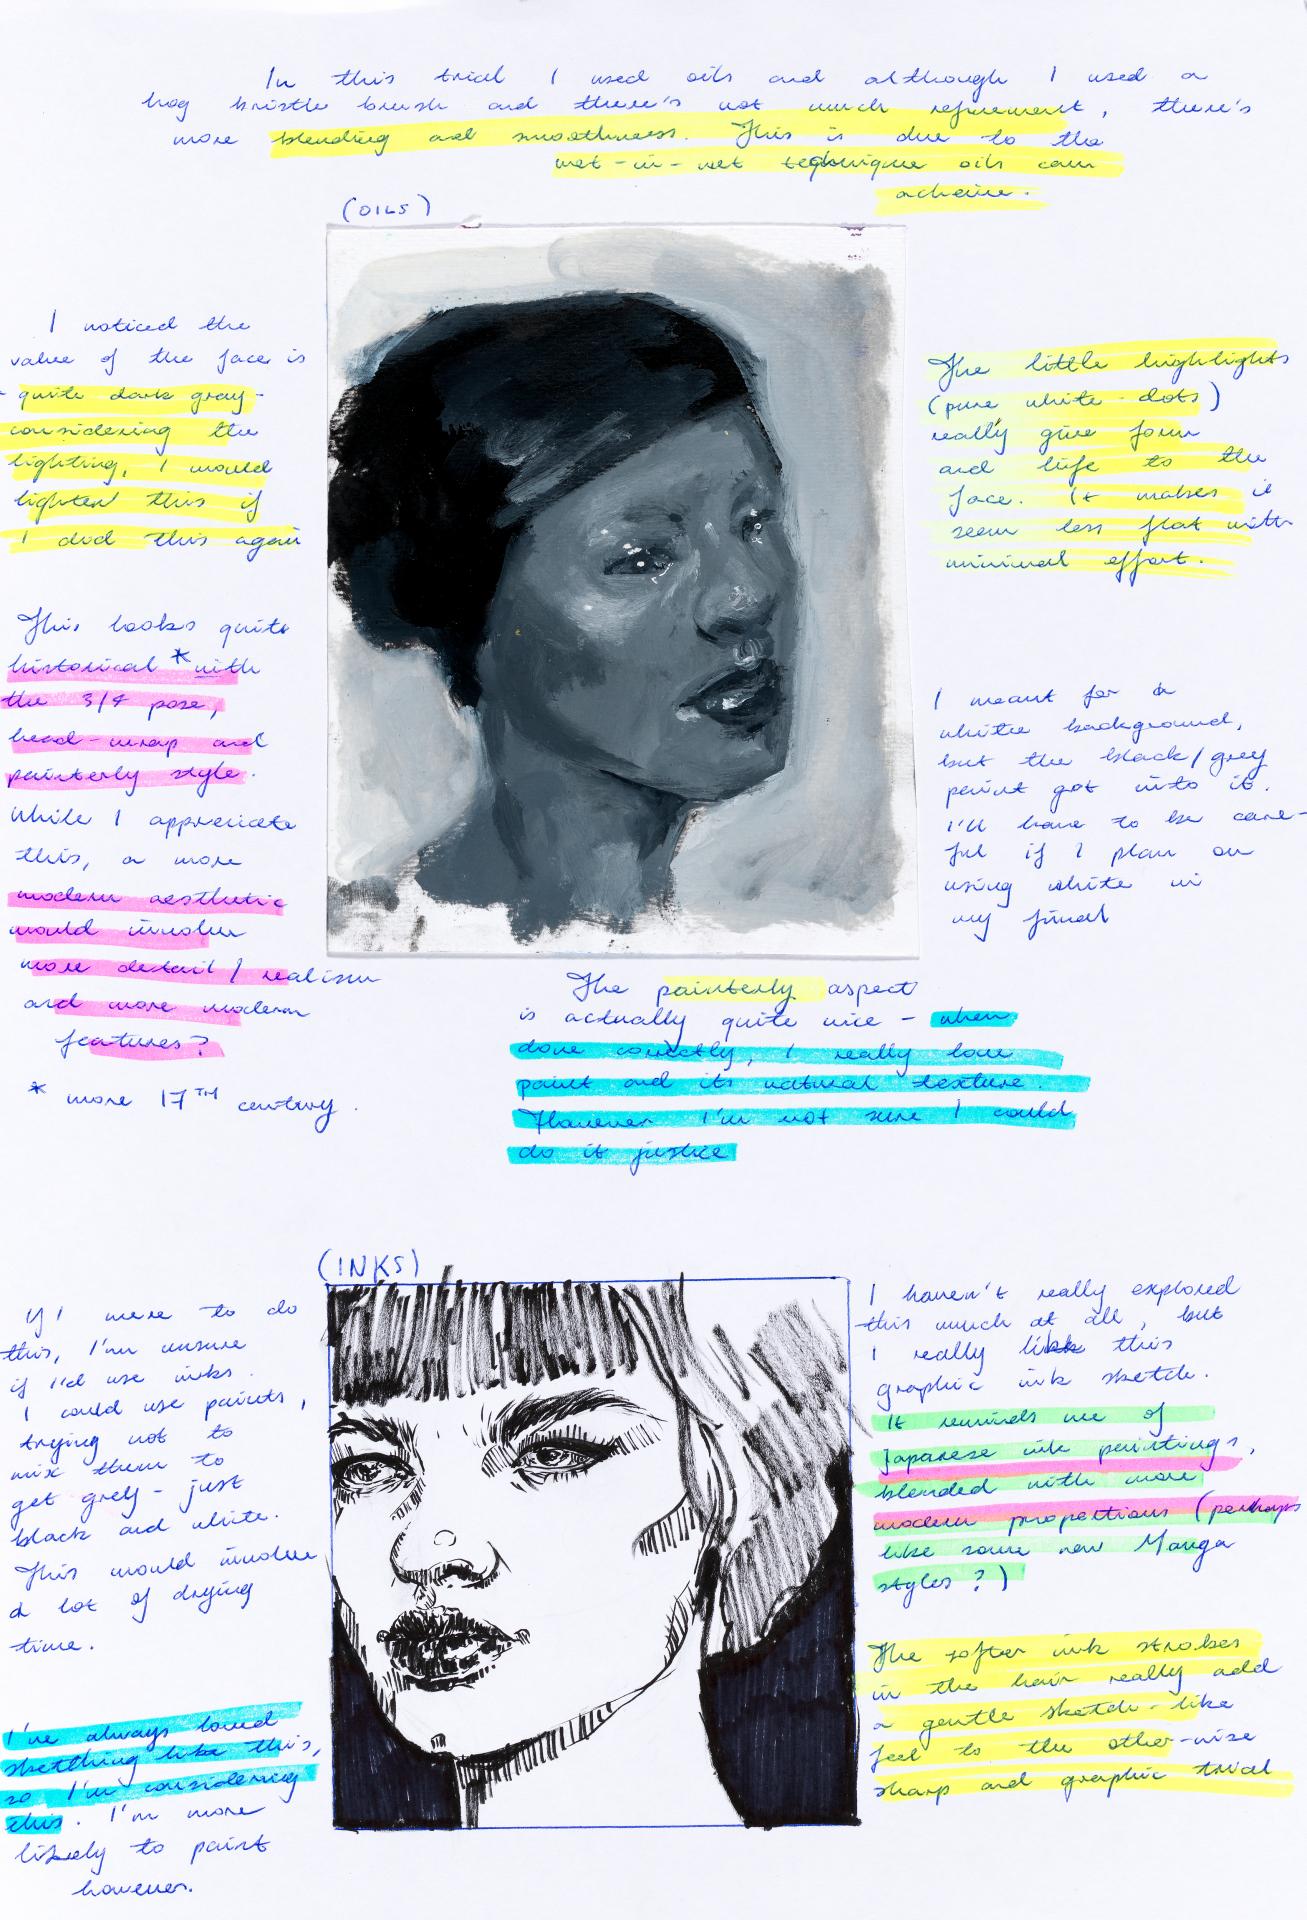 In this trial I used oils and although I used a
hog bristle brush and there's not much refinement, there's
more blending and smoothness. This is due to the
wet-in-wet technique oils can
acheive.
(OILS)
I noticed the
value of the face is
- quite dark gray -
considering the
lighting, I would
lighten this if
I did this again
This looks quite
historical * with
the 3/4 pose,
head-wrap and
painterly style.
While I appreciate
this, a more
modern aesthetic
would involve
more detail / realism
and more modern
features?
* more 17TH century.
The little highlights
(pure white dots)
really give form
and life to the
face. It makes it
seem less flat with
minimal effort.
I meant for a
white background,
but the black/grey
paint got into it.
I'll have to be care-
ful if I plan on
using white in
my final
The painterly aspect
is actually quite nice - when
done correctly, I really love
paint and its natural texture.
However I'm not sure I could
do it justice
(INKS)
If I were to do
this, I'm unsure
if I'd use inks.
I could use paints,
trying not to
mix them to
get grey - just
black and white.
This would involve
a lot of drying
time.
I've always loved
sketching like this,
so I'm considering
this. I'm more
likely to paint
however.
I haven't really explored
this much at all, but
I really like this
graphic ink sketch.
It reminds me of
Japanese ink paintings,
blended with more
modern proportions (perhaps
like some new Manga
styles?)
The softer ink strokes
in the hair really add
a gentle sketch-like
feel to the other-wise
sharp and graphic trial